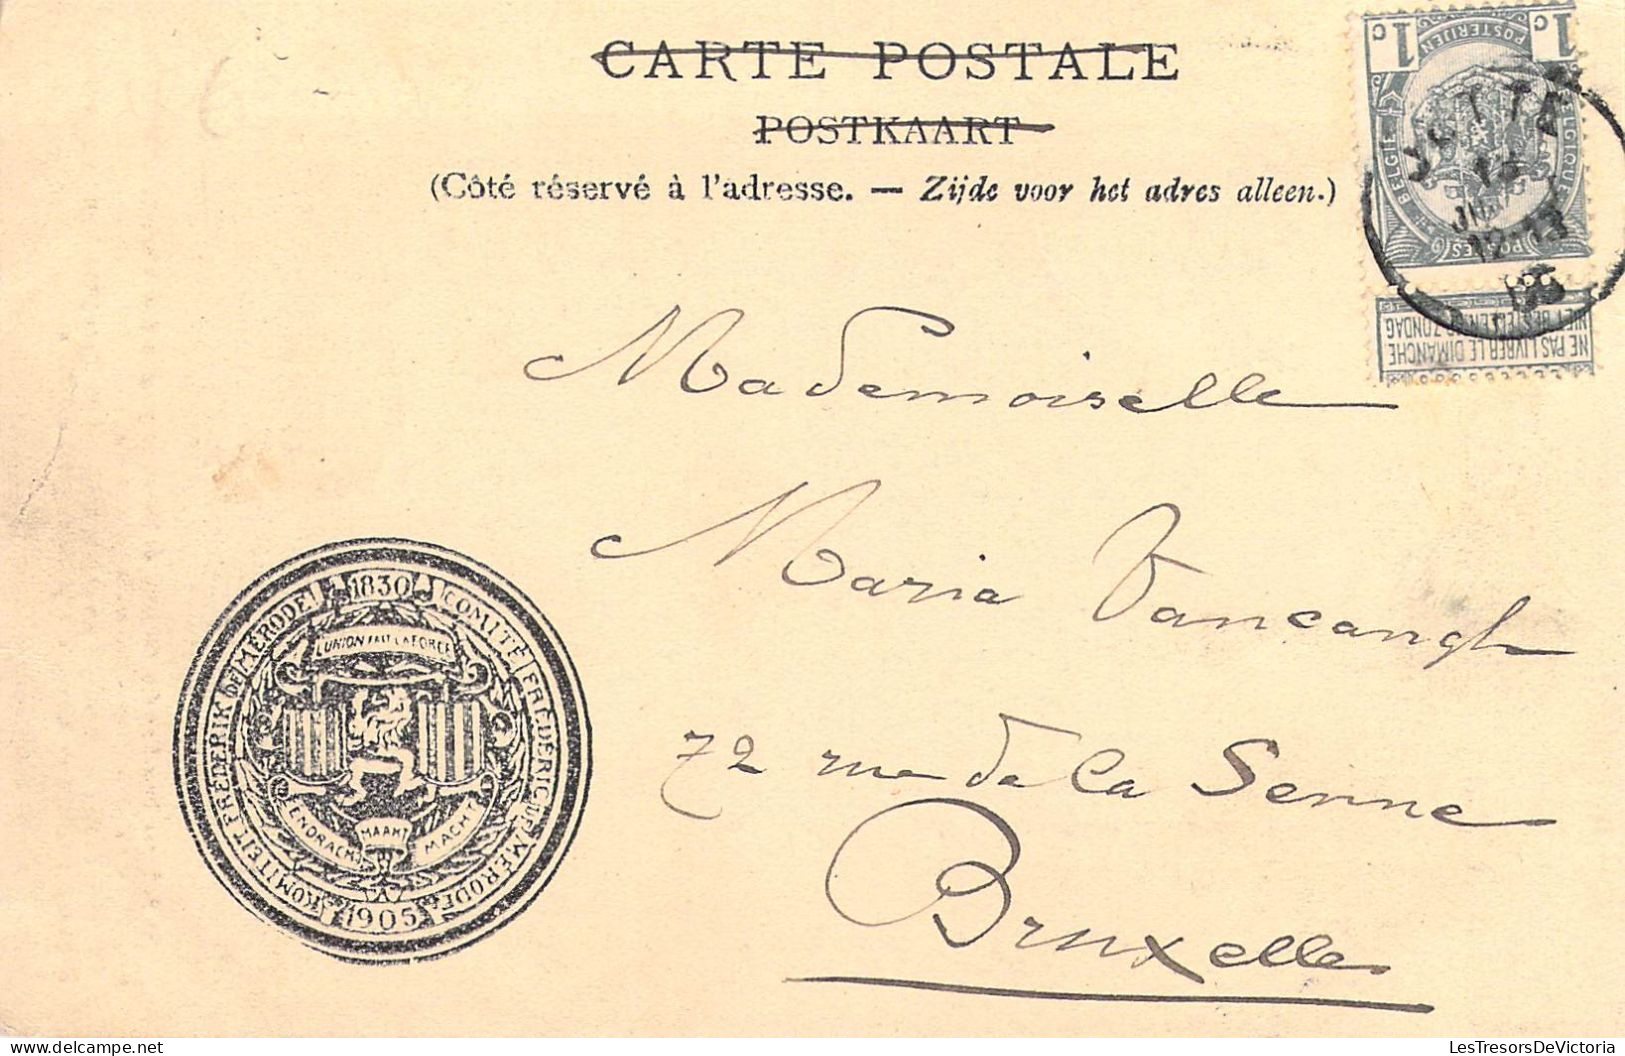 CARTE POSTALE
POSTKAART
(Côté réservé à l'adresse. — Zijde voor het adres alleen.)
1c POSTERIJEN 1c
BELGIË BELGIQUE
POSTES
JETTE
12-13
NIET BESTELLEN OP ZONDAG
NE PAS LIVRER LE DIMANCHE
Mademoiselle
Maria Vancangh
72 rue de la Senne
Bruxelles
1830
COMITÉ FRÉDERIC DE MÉRODE
KOMITEIT FREDERIK DE MÉRODE
L'UNION FAIT LA FORCE
EENDRACHT MAAKT MACHT
1905
LesTresorsDeVictoria.com